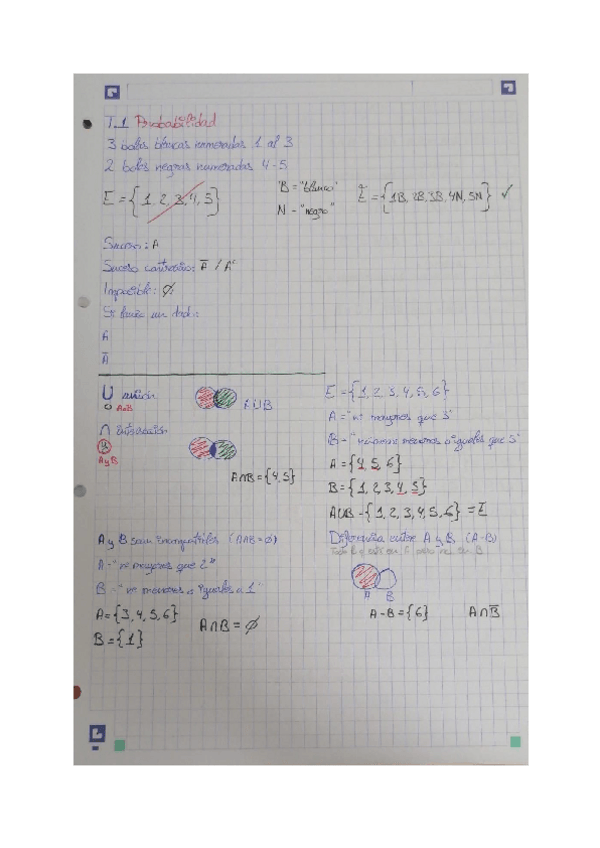 T.1 Probabilidad
3 bolas blancas numeradas 1 al 3
2 bolas negras numeradas 4-5
E = {1, 2, 3, 4, 5}
B = "blanco"
N - "negro"
E = {1B, 2B, 3B, 4N, 5N} ✓
Suceso: A
Suceso contrario: Ā / Aᶜ
Imposible: ∅
Si lanzo un dado:
A
Ā
U unión
O AoB
A∪B
∩ intersección
Y AyB
A∩B = {4,5}
E = {1, 2, 3, 4, 5, 6}
A = "nº mayores que 3"
B = "números menores o iguales que 5"
A = {4, 5, 6}
B = {1, 2, 3, 4, 5}
A∪B = {1, 2, 3, 4, 5, 6} = E
A y B sean Incompatibles (A∩B = ∅)
A - "nº mayores que 2"
B - "nº menores o iguales a 1"
A = {3, 4, 5, 6}
B = {1}
A∩B = ∅
Diferencia entre A y B (A-B)
Todo lo q esté en A pero no en B
A B
A-B = {6}
A∩B̄